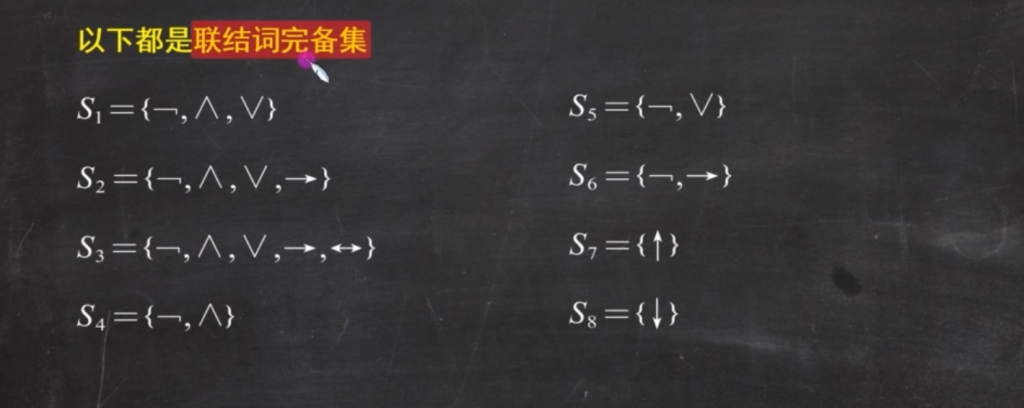 以下都是联结词完备集
S₁={¬,∧,∨}
S₂={¬,∧,∨,→}
S₃={¬,∧,∨,→,↔}
S₄={¬,∧}
S₅={¬,∨}
S₆={¬,→}
S₇={↑}
S₈={↓}